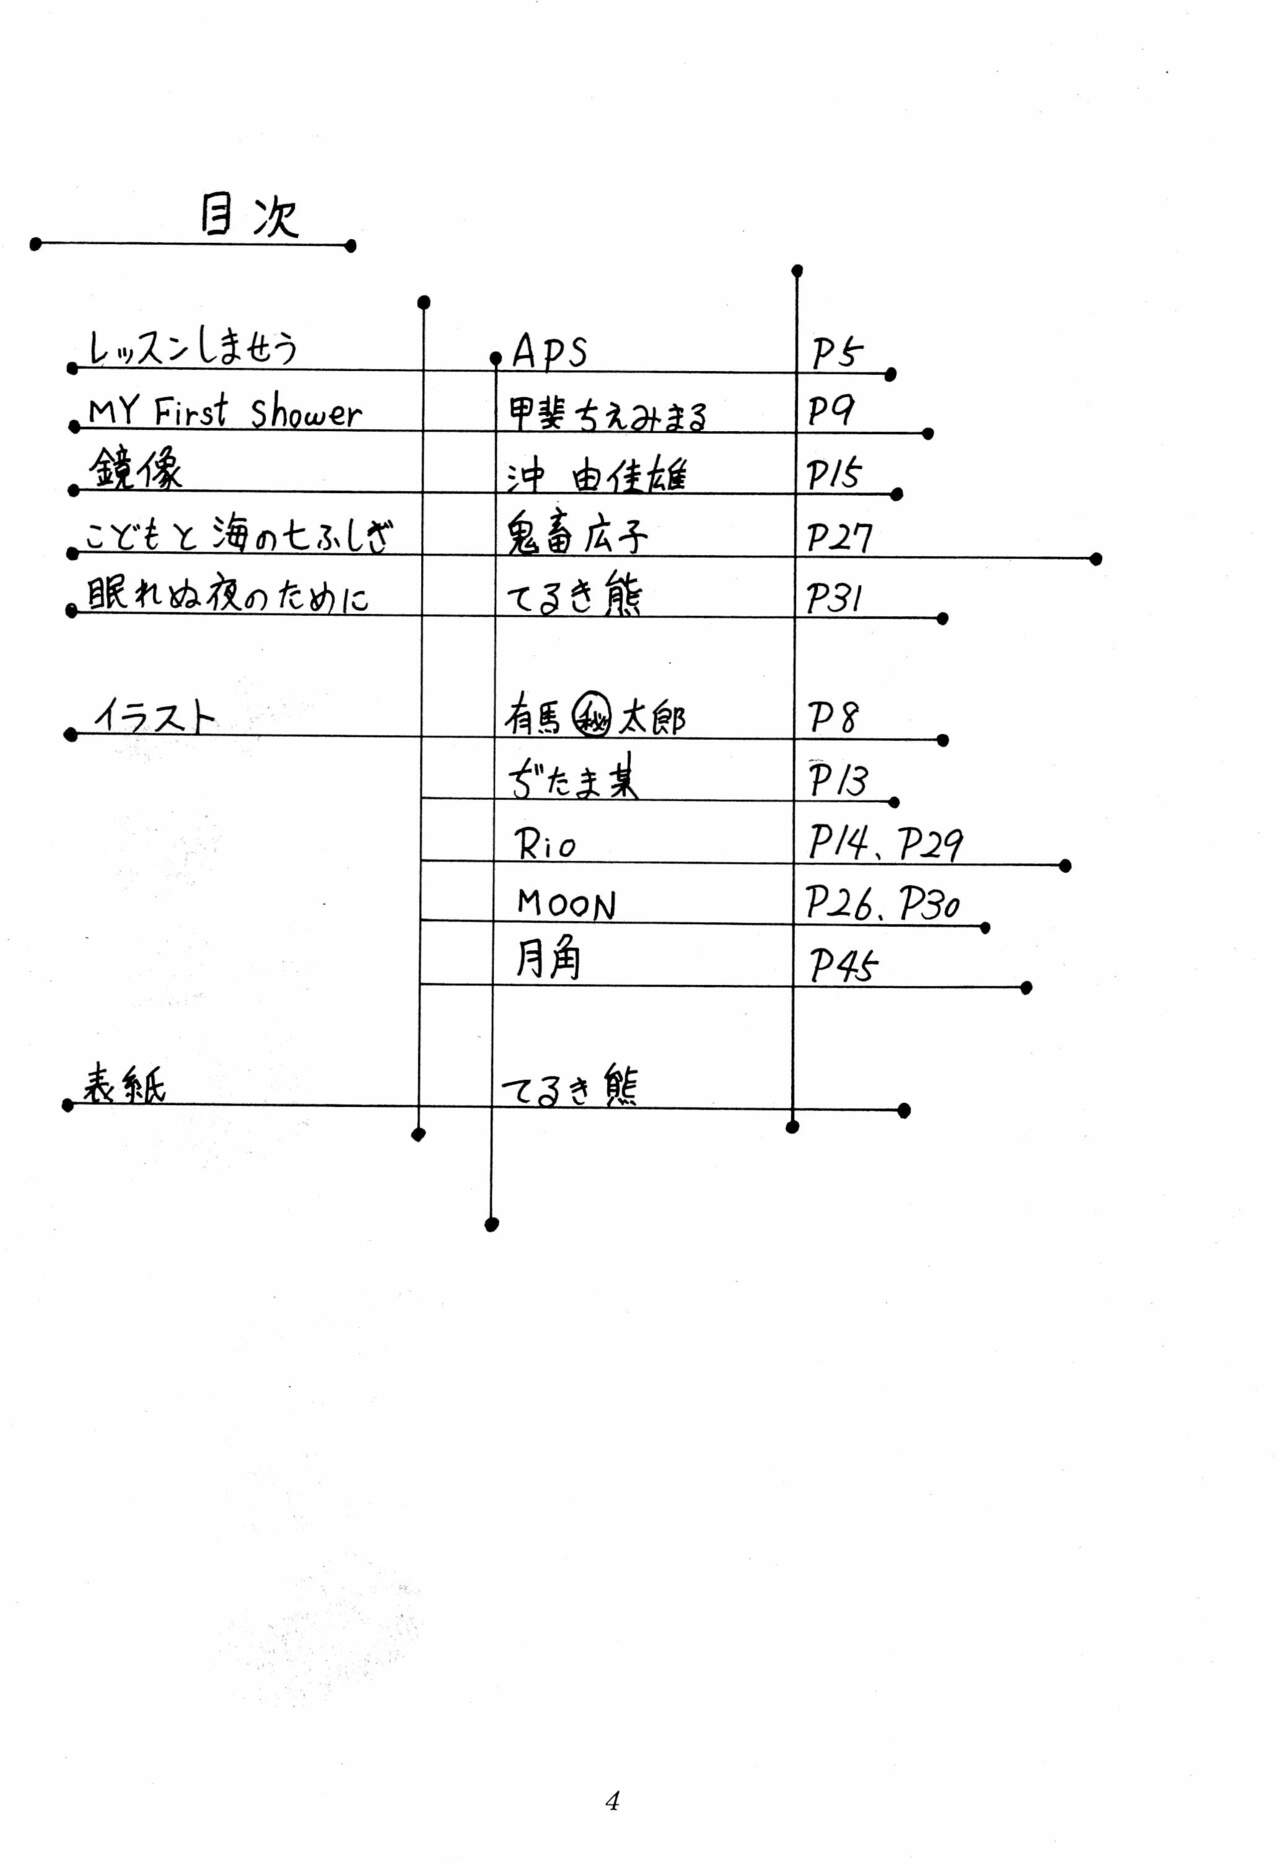 目次
レッスンしませう APS P5
MY First Shower 甲斐ちえみまる P9
鏡像 沖 由佳雄 P15
こどもと海の七ふしぎ 鬼畜広子 P27
眠れぬ夜のために てるき熊 P31
イラスト 有馬㊙太郎 P8
ぢたま某 P13
Rio P14、P29
MOON P26、P30
月角 P45
表紙 てるき熊
4